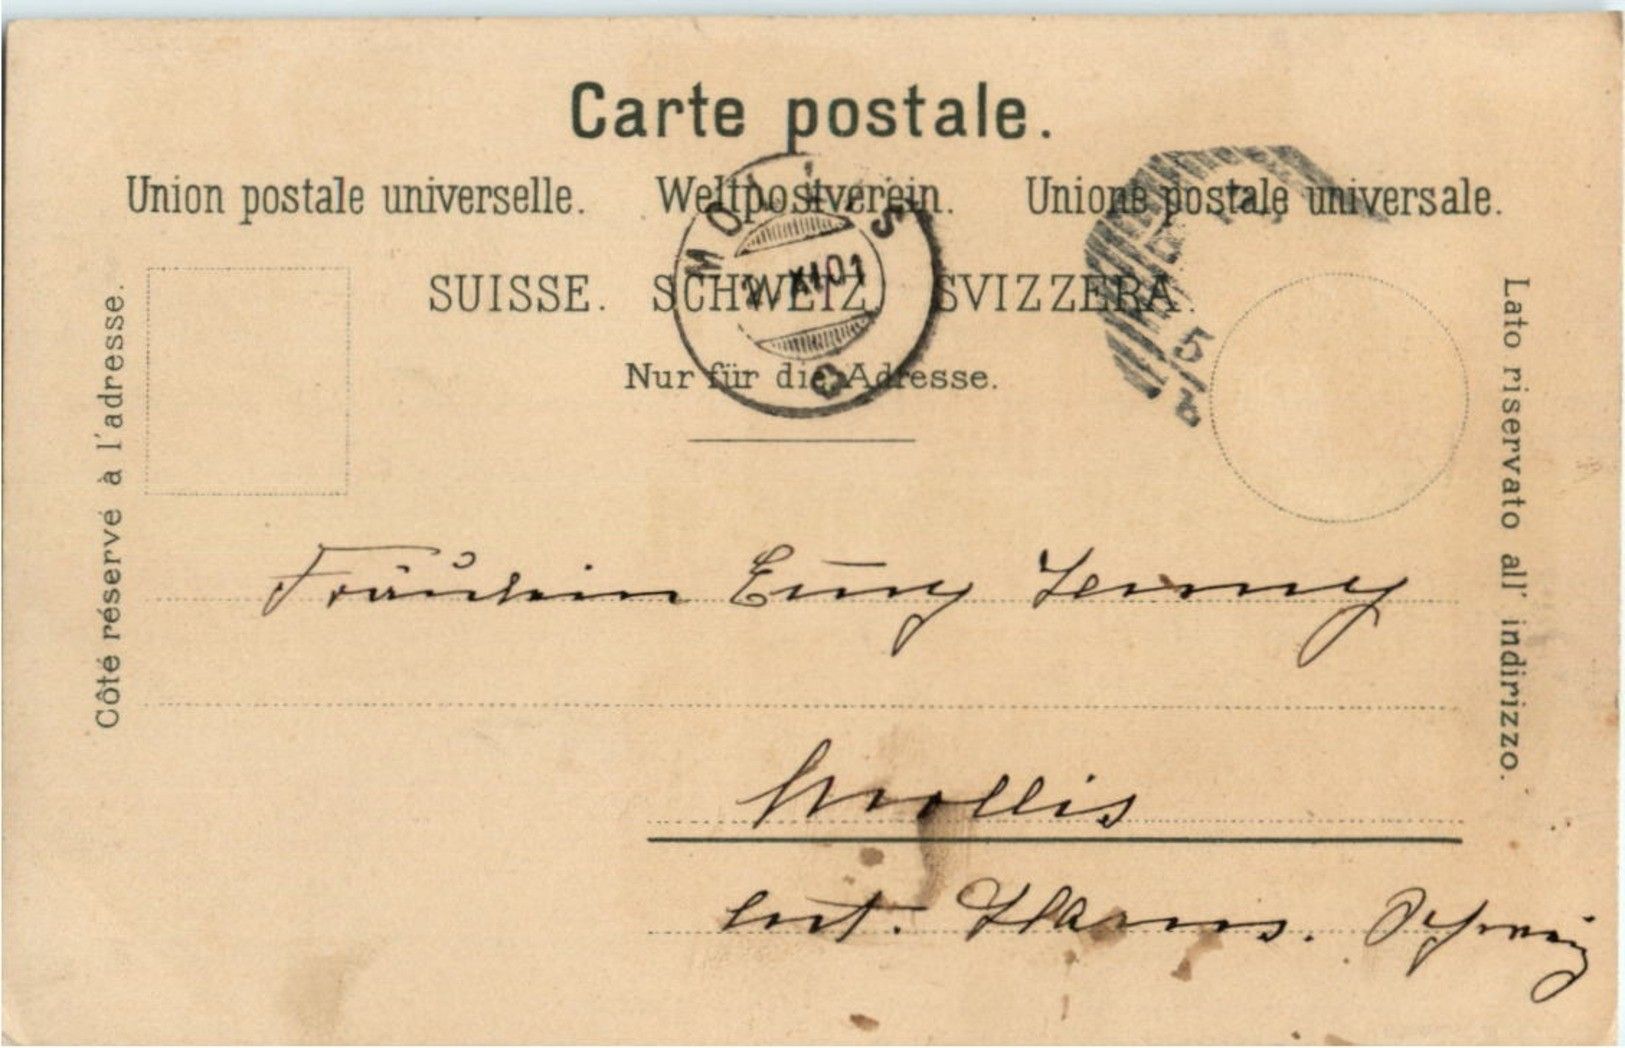 Carte postale.
Union postale universelle. Weltpostverein. Unione postale universale.
SUISSE. SCHWEIZ. SVIZZERA.
Nur für die Adresse.
Côté réservé à l'adresse.
Lato riservato all' indirizzo.
MOLLIS
XI.01
5
Fräulein Jenny
Mollis
Ct. Glarus. Schweiz